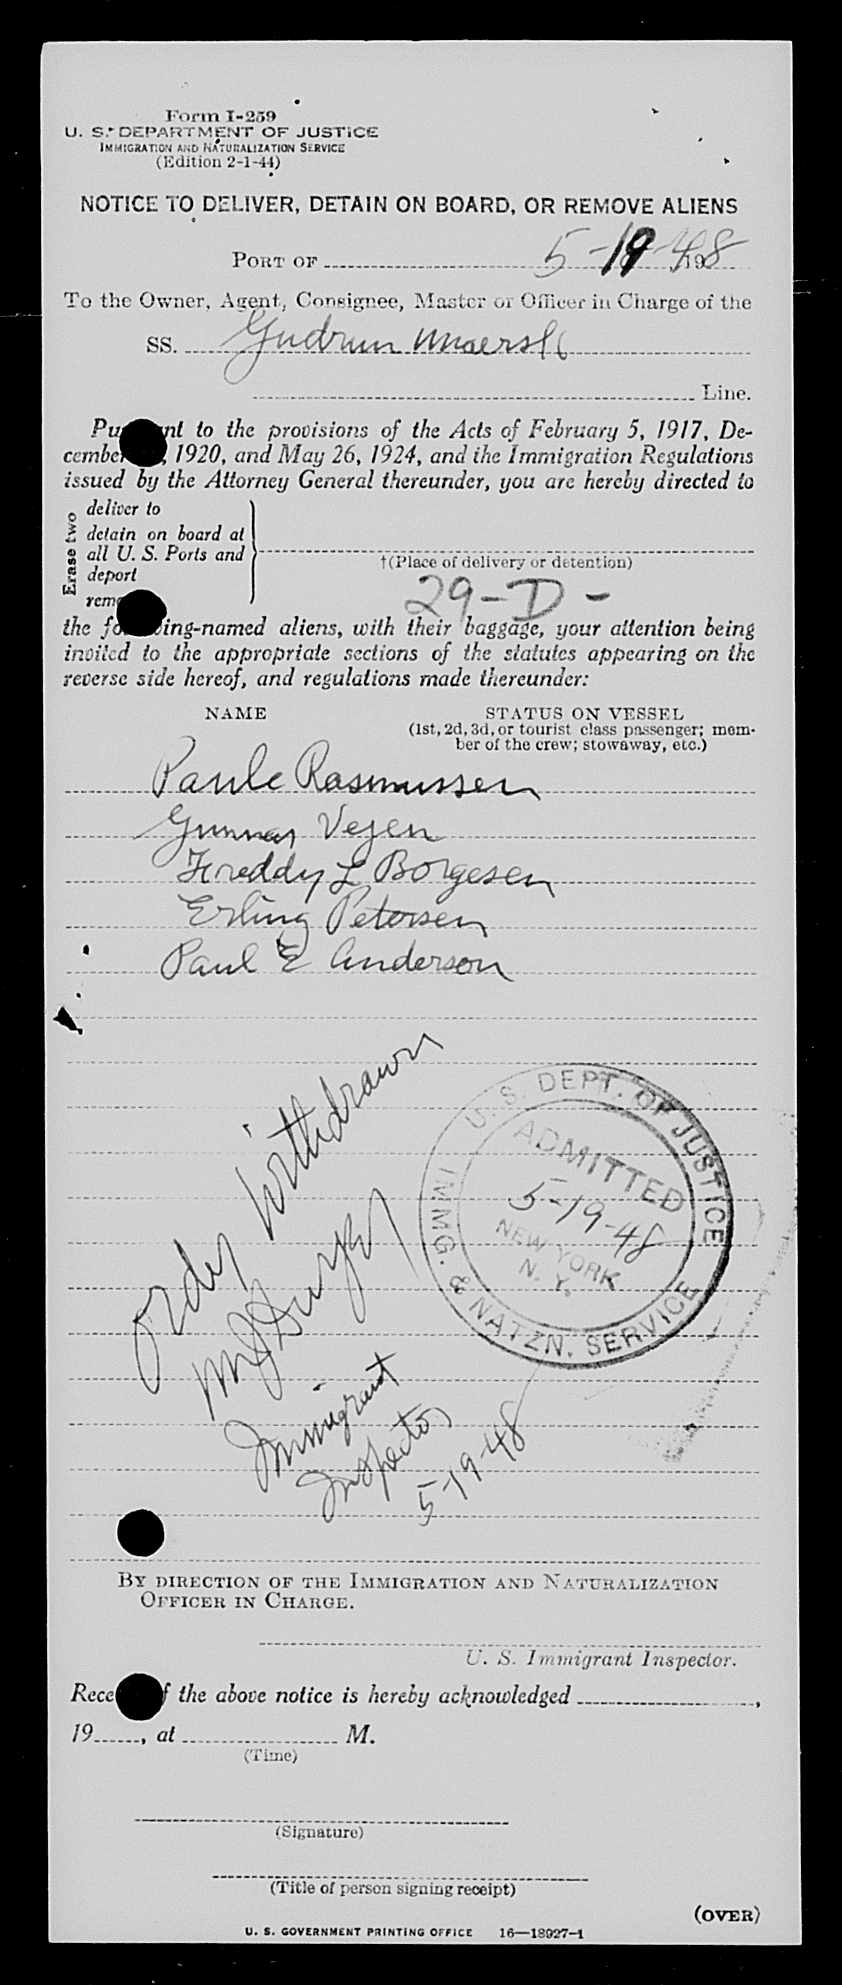 Form I-259
U. S. DEPARTMENT OF JUSTICE
IMMIGRATION AND NATURALIZATION SERVICE
(Edition 2-1-44)
NOTICE TO DELIVER, DETAIN ON BOARD, OR REMOVE ALIENS
PORT OF 5-19-48 19
To the Owner, Agent, Consignee, Master or Officer in Charge of the
SS. Gudrun Maersk
Line.
Pu nt to the provisions of the Acts of February 5, 1917, De-
cembe , 1920, and May 26, 1924, and the Immigration Regulations
issued by the Attorney General thereunder, you are hereby directed to
Erase two
deliver to
detain on board at
all U. S. Ports and
deport
rem
†(Place of delivery or detention)
29-D-
the fo ing-named aliens, with their baggage, your attention being
invited to the appropriate sections of the statutes appearing on the
reverse side hereof, and regulations made thereunder:
NAME STATUS ON VESSEL
(1st, 2d, 3d, or tourist class passenger; mem-
ber of the crew; stowaway, etc.)
Paule Rasmussen
Gunnar Vejen
Freddy L Borgesen
Erling Petersen
Paul E Anderson
order withdrawn
Immigrant
Inspector
5-19-48
U. S. DEPT. OF JUSTICE
ADMITTED
5-19-48
NEW YORK
N. Y.
IMMG. & NATZN. SERVICE
BY DIRECTION OF THE IMMIGRATION AND NATURALIZATION
OFFICER IN CHARGE.
U. S. Immigrant Inspector.
Rece f the above notice is hereby acknowledged ,
19 , at M.
(Time)
(Signature)
(Title of person signing receipt)
(OVER)
U. S. GOVERNMENT PRINTING OFFICE 16—18927-1